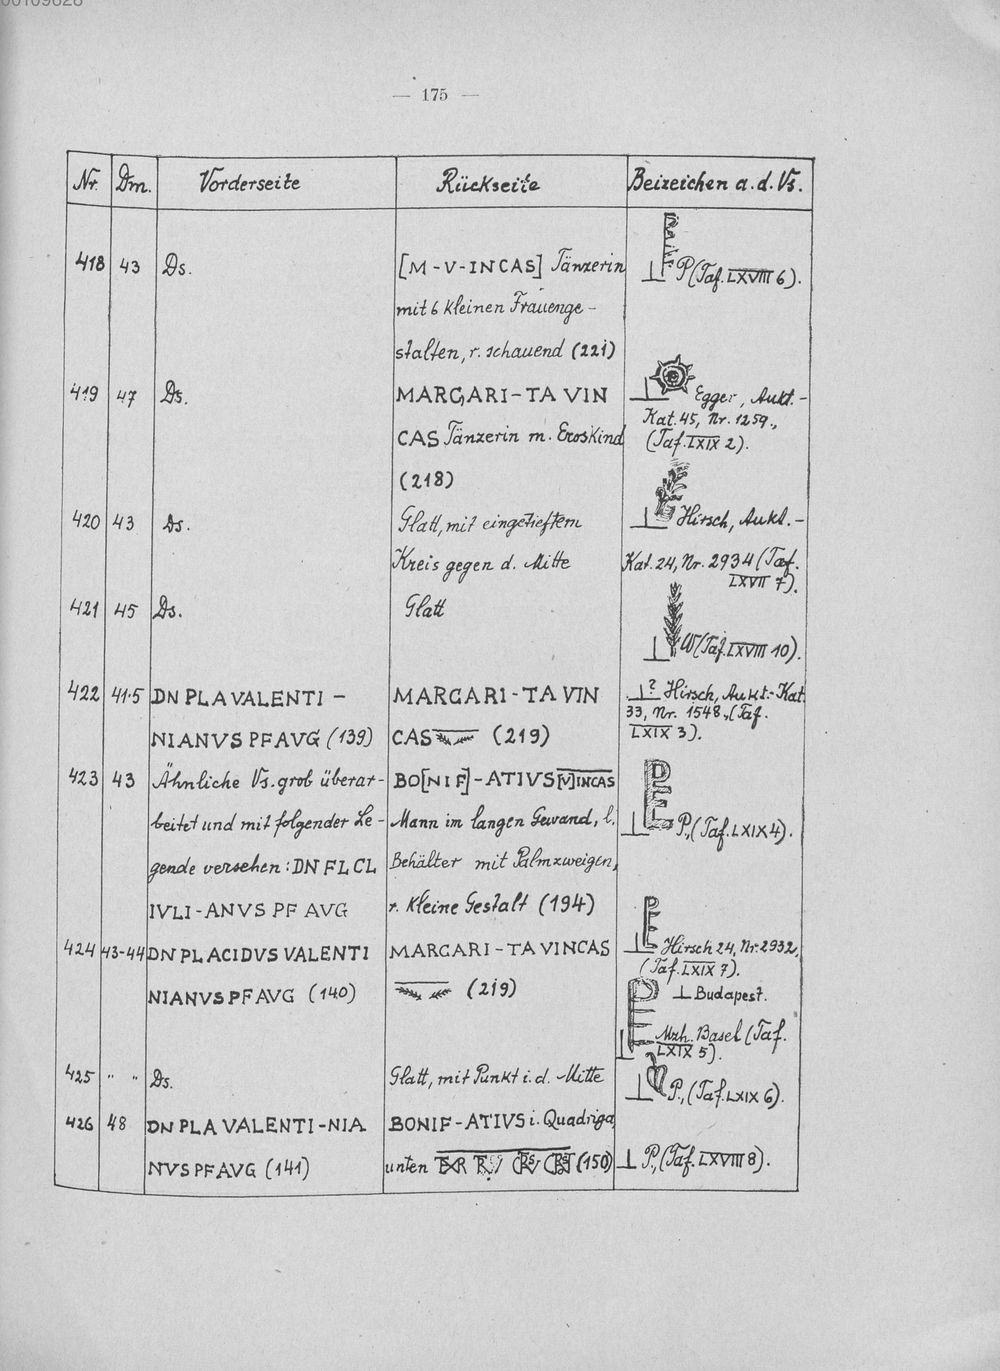 00109828
— 175 —
Nr. Dm. Vorderseite Rückseite Beizeichen a. d. Vs.
418 43 Ds. [M-V-INCAS] Tänzerin P (Taf. LXVIII 6).
mit 6 kleinen Frauenge-
stalten, r. schauend (221)
419 47 Ds. MARGARI-TA VIN Egger, Aukt.-
Kat. 45, Nr. 1259.,
CAS Tänzerin m. Eroskind (Taf. LXIX 2).
(218)
420 43 Ds. Glatt, mit eingetieftem Hirsch, Aukt.-
Kreis gegen d. Mitte Kat. 24, Nr. 2934 (Taf.
LXVII 7).
421 45 Ds. Glatt
W (Taf. LXVIII 10).
422 41·5 DN PLA VALENTI - MARGARI-TA VIN ? Hirsch, Aukt.-Kat.
33, Nr. 1548., (Taf.
NIANVS PF AVG (139) CAS (219) LXIX 3).
423 43 Ähnliche Vs. grob überar- BO[NIF]-ATIVS [V]INCAS
beitet und mit folgender Le- Mann im langen Gewand, l. P., (Taf. LXIX 4).
gende versehen: DN FL CL Behälter mit Palmzweigen,
IVLI-ANVS PF AVG r. kleine Gestalt (194)
424 43-44 DN PLACIDVS VALENTI MARGARI-TA VINCAS Hirsch 24, Nr. 2932,
(Taf. LXIX 7).
NIANVS PF AVG (140) (219) Budapest.
Mzh. Basel (Taf.
LXIX 5).
425 " " Ds. Glatt, mit Punkt i. d. Mitte P., (Taf. LXIX 6).
426 48 DN PLA VALENTI-NIA BONIF-ATIVS i. Quadriga,
NVS PF AVG (141) unten (150) P., (Taf. LXVIII 8).